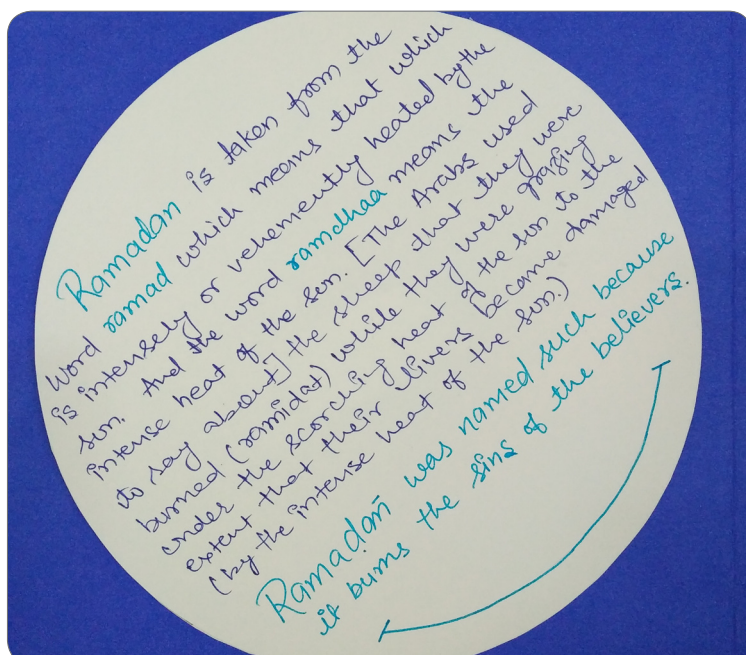 Ramadan is taken from the
word ramad which means that which
is intensely or vehemently heated by the
sun. And the word ramdhaa means the
intense heat of the sun. [The Arabs used
to say about] the sheep that they were
burned (ramidat) while they were grazing
under the scorching heat of the sun to the
extent that their livers became damaged
(by the intense heat of the sun.)
Ramadan was named such because
it burns the sins of the believers.